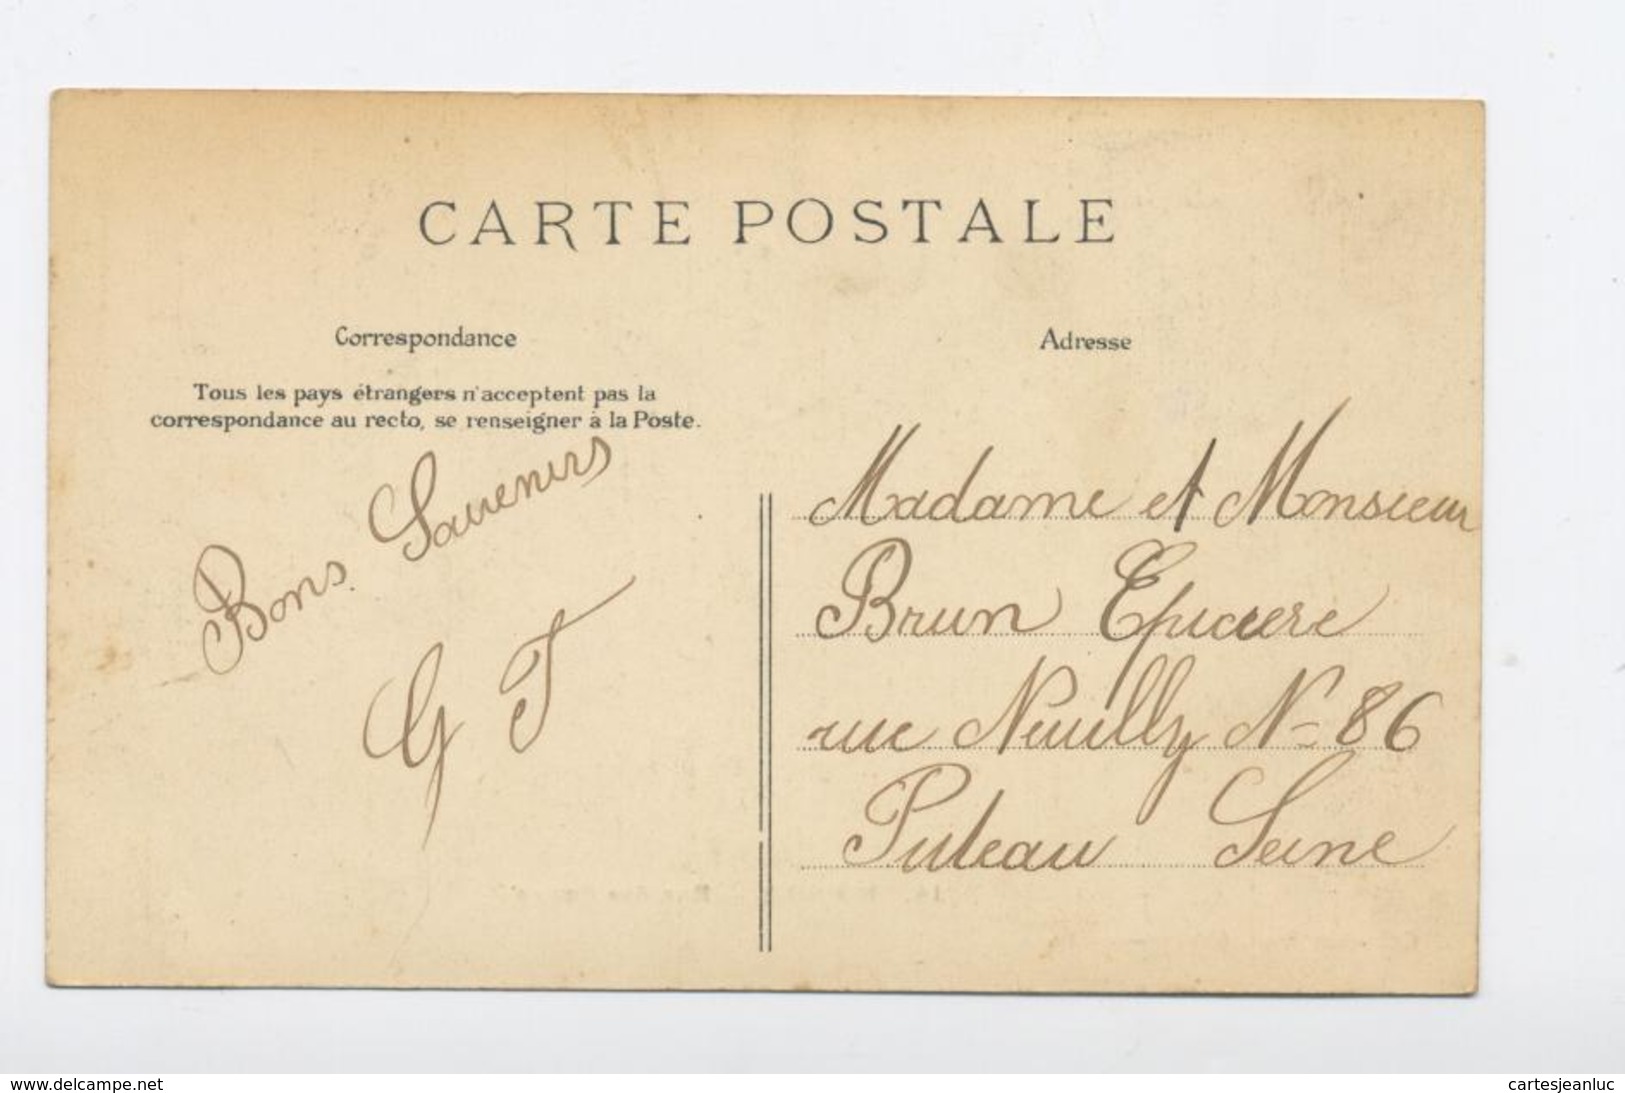 CARTE POSTALE
Correspondance
Tous les pays étrangers n'acceptent pas la
correspondance au recto, se renseigner à la Poste.
Bons Souvenirs
G T
Adresse
Madame et Monsieur
Brun Epiciere
rue Neuilly N= 86
Puteau Seine
www.delcampe.net
cartesjeanluc